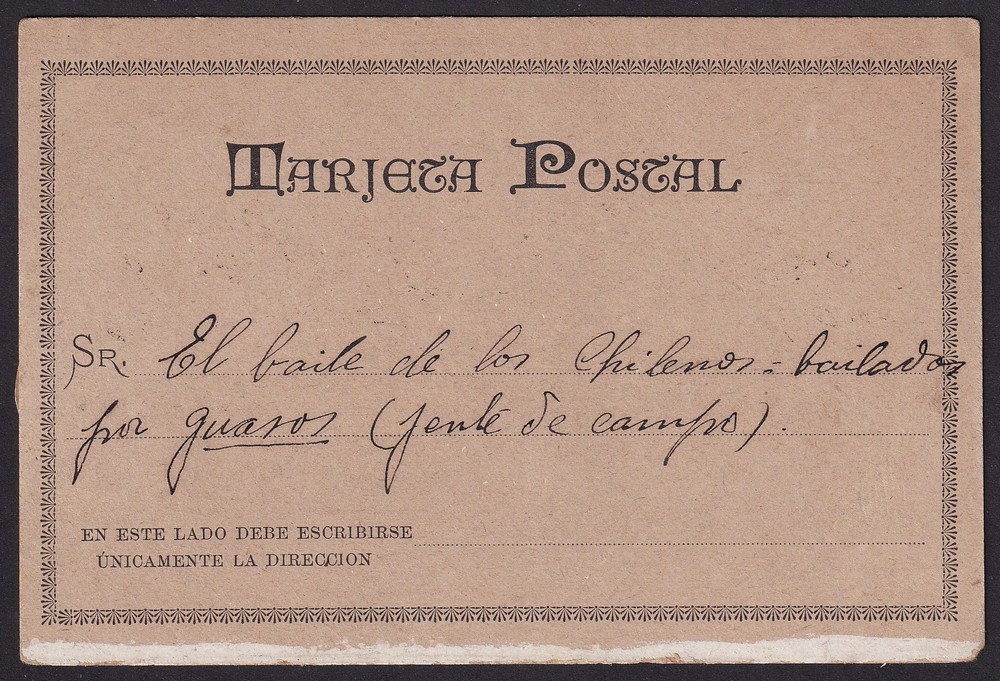 TARJETA POSTAL
SR. El baile de los Chilenos = bailados
por guasos (jente de campo).
EN ESTE LADO DEBE ESCRIBIRSE
ÚNICAMENTE LA DIRECCION